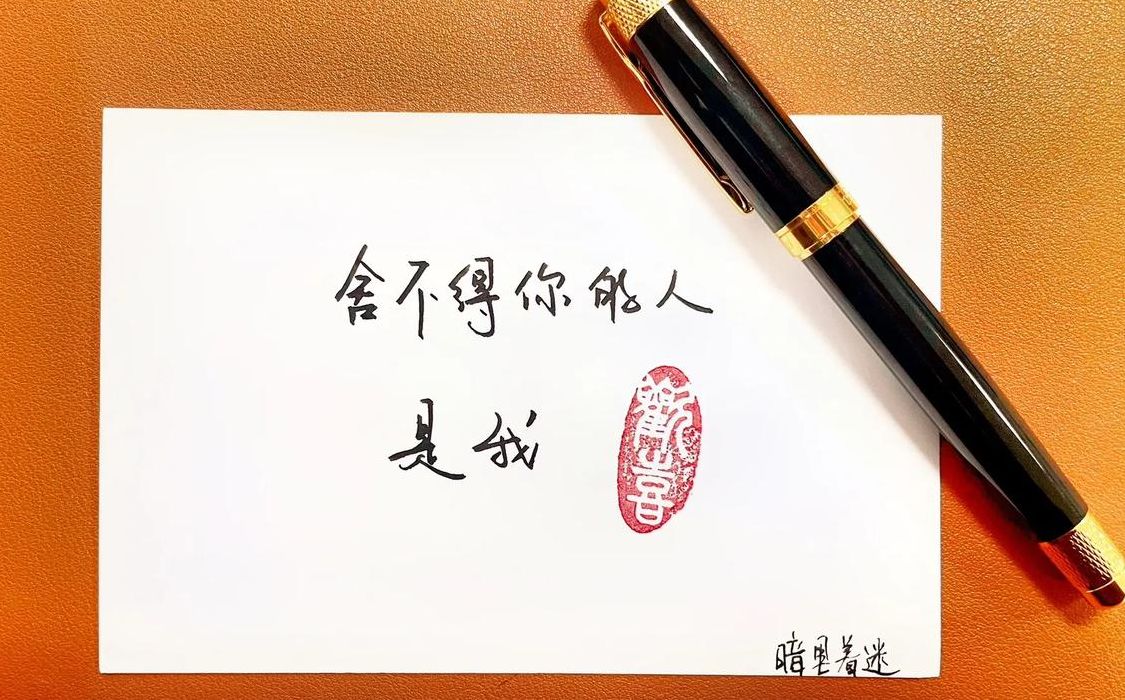 舍不得你的人
是我
歡喜
暗里着迷